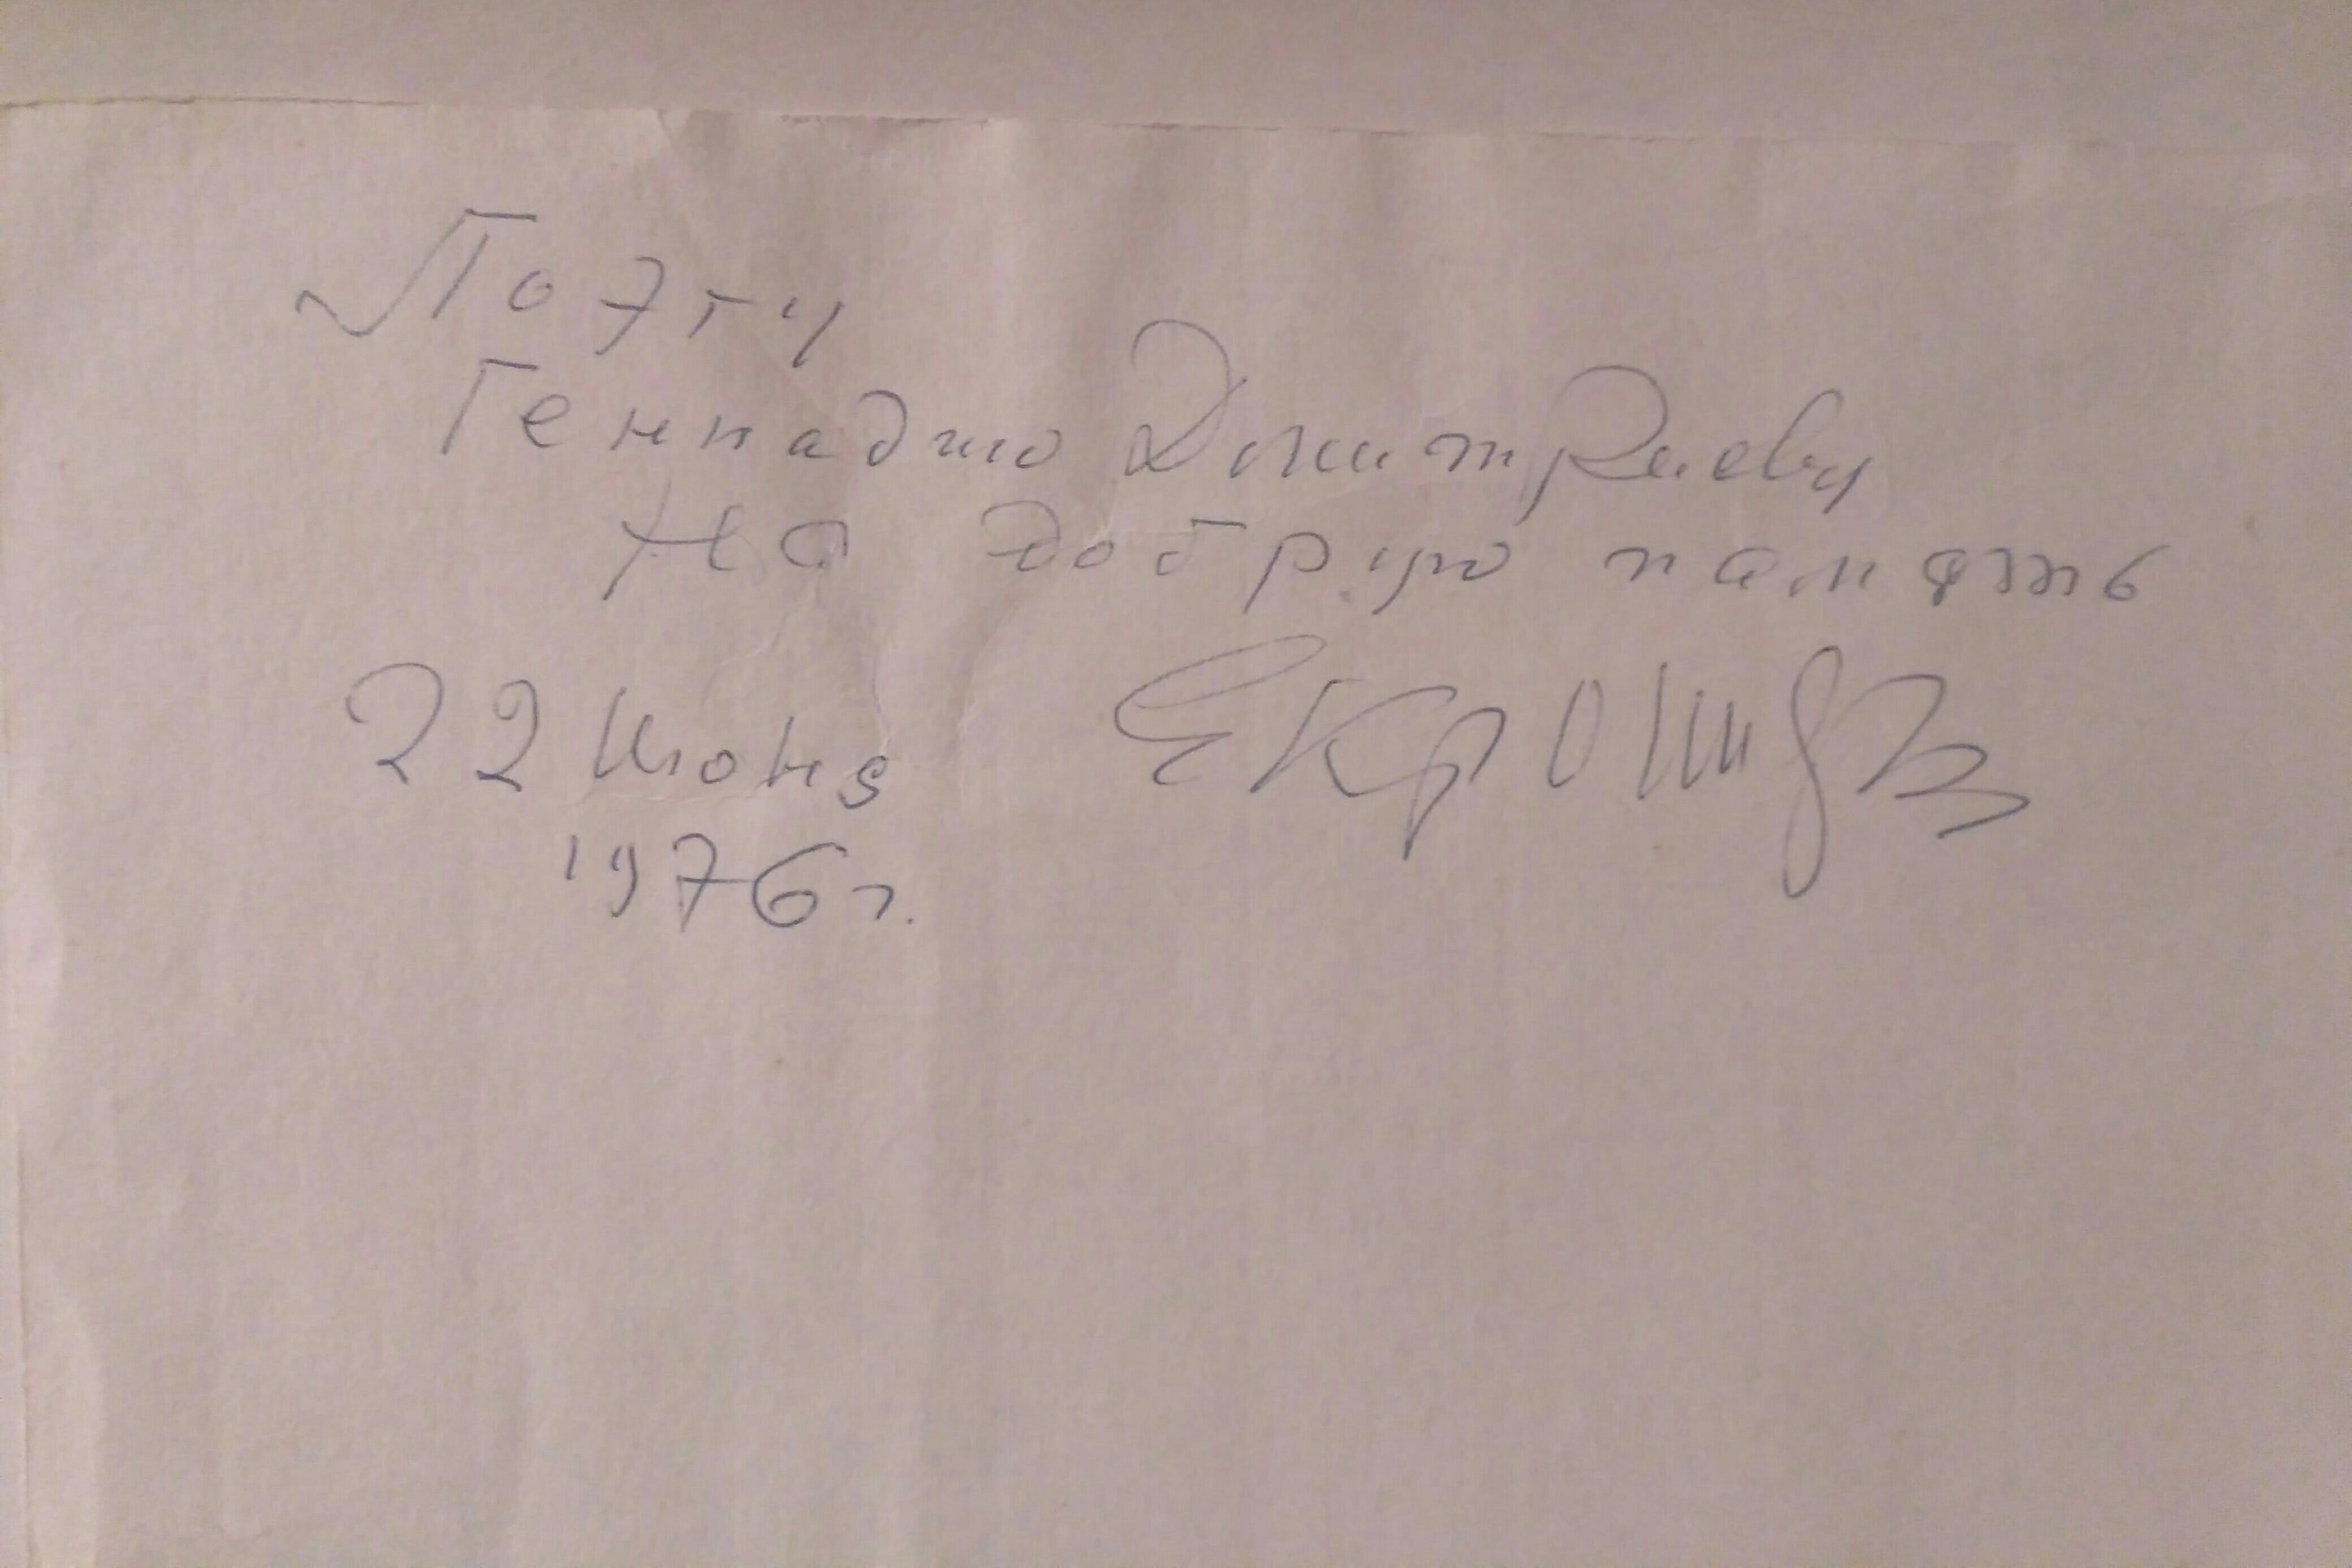 Поэту
Геннадию Дмитриеву
на добрую память
22 июня
1976 г.